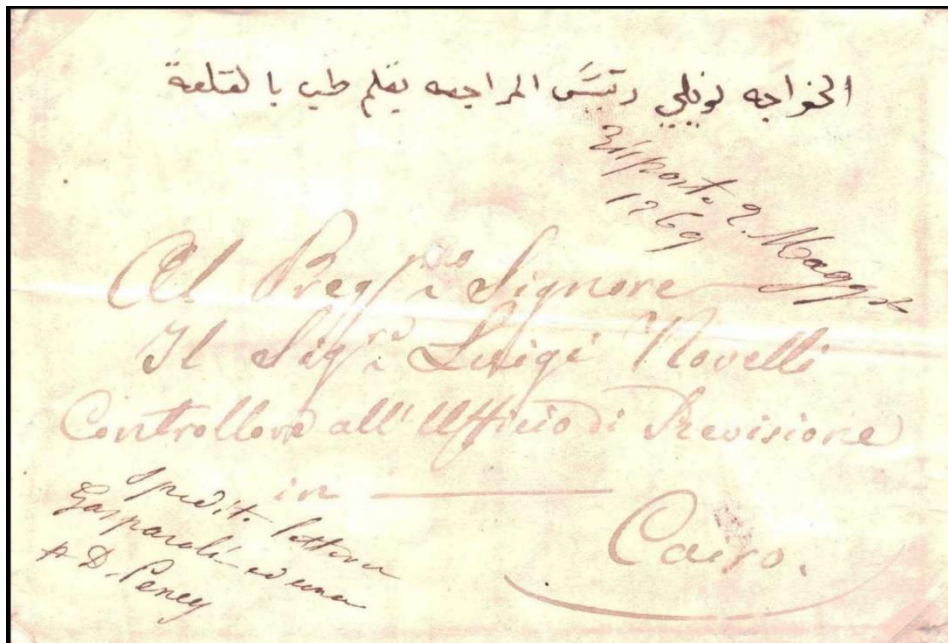 الخواجه نوبلي رئيس المراجعه بقلم طب بالقلعة
Risposto 2. Maggio
1869
Al Preg.mo Signore
Il Sig.r Luigi Novelli
Controllore all' Ufficio di Revisione
in
Cairo.
Spedit. lettera
Gasparoli ed una
D. Peney